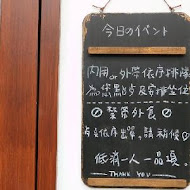 今日のイベント
內用or外帶依序排隊
為您點步及安排座位
禁帶外食
依序出單，請稍候♡
低消一人一品項
THANK YOU